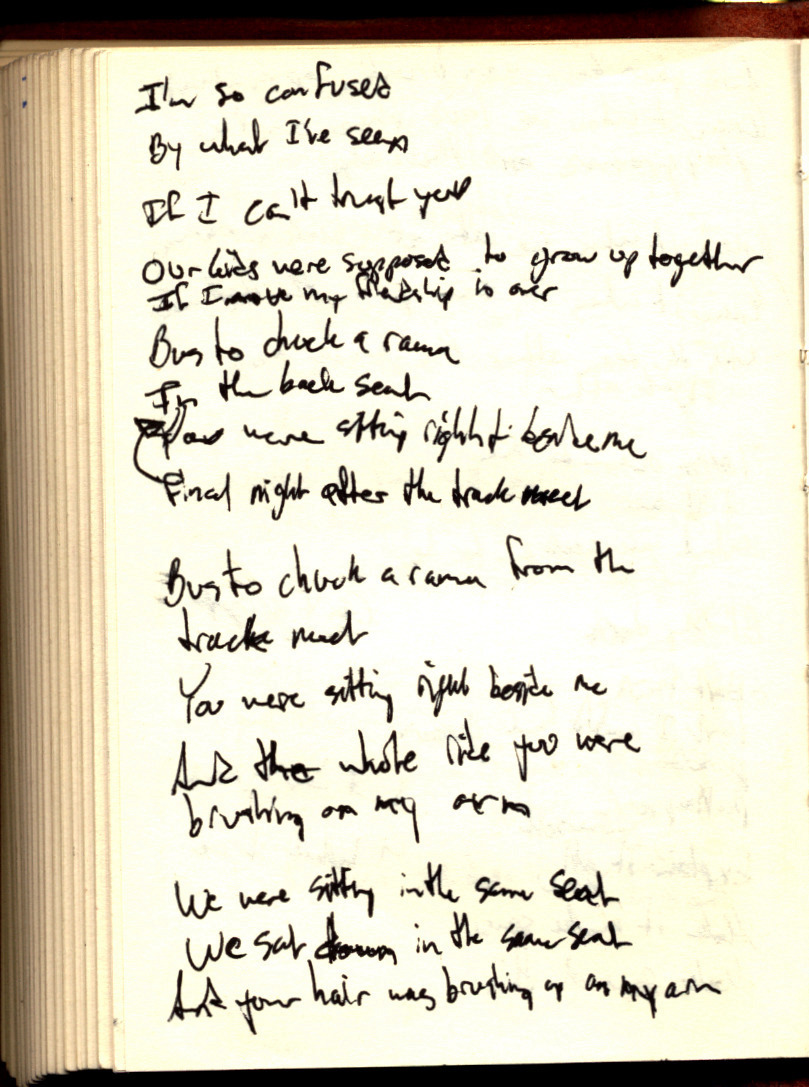 I'm so confused
By what I've seen
If I can't trust you
Our kids were supposed to grow up together
If I move my friendship is over
Bus to chuck a rama
In the back seat
You were sitting right beside me
Final night after the track meet
Bus to chuck a rama from the
track meet
You were sitting right beside me
And the whole ride you were
brushing on my arm
We were sitting in the same seat
We sat down in the same seat
And your hair was brushing up on my arm